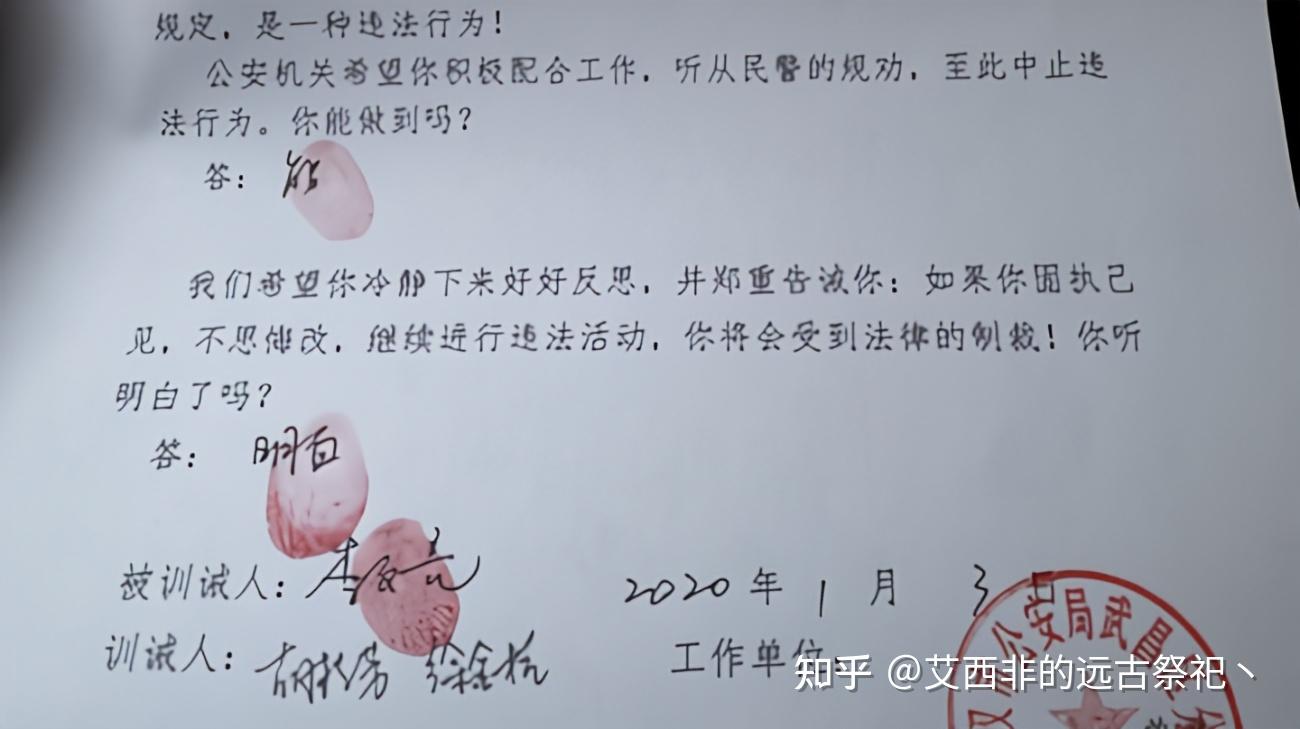 规定，是一种违法行为！
公安机关希望你积极配合工作，听从民警的规劝，至此中止违
法行为。你能做到吗？
答：能
我们希望你冷静下来好好反思，并郑重告诫你：如果你固执己
见，不思悔改，继续进行违法活动，你将会受到法律的制裁！你听
明白了吗？
答：明白
被训诫人：李文亮 2020 年 1 月 3 日
训诫人： 工作单位：
公安局武昌
知乎 @艾西非的远古祭祀丶